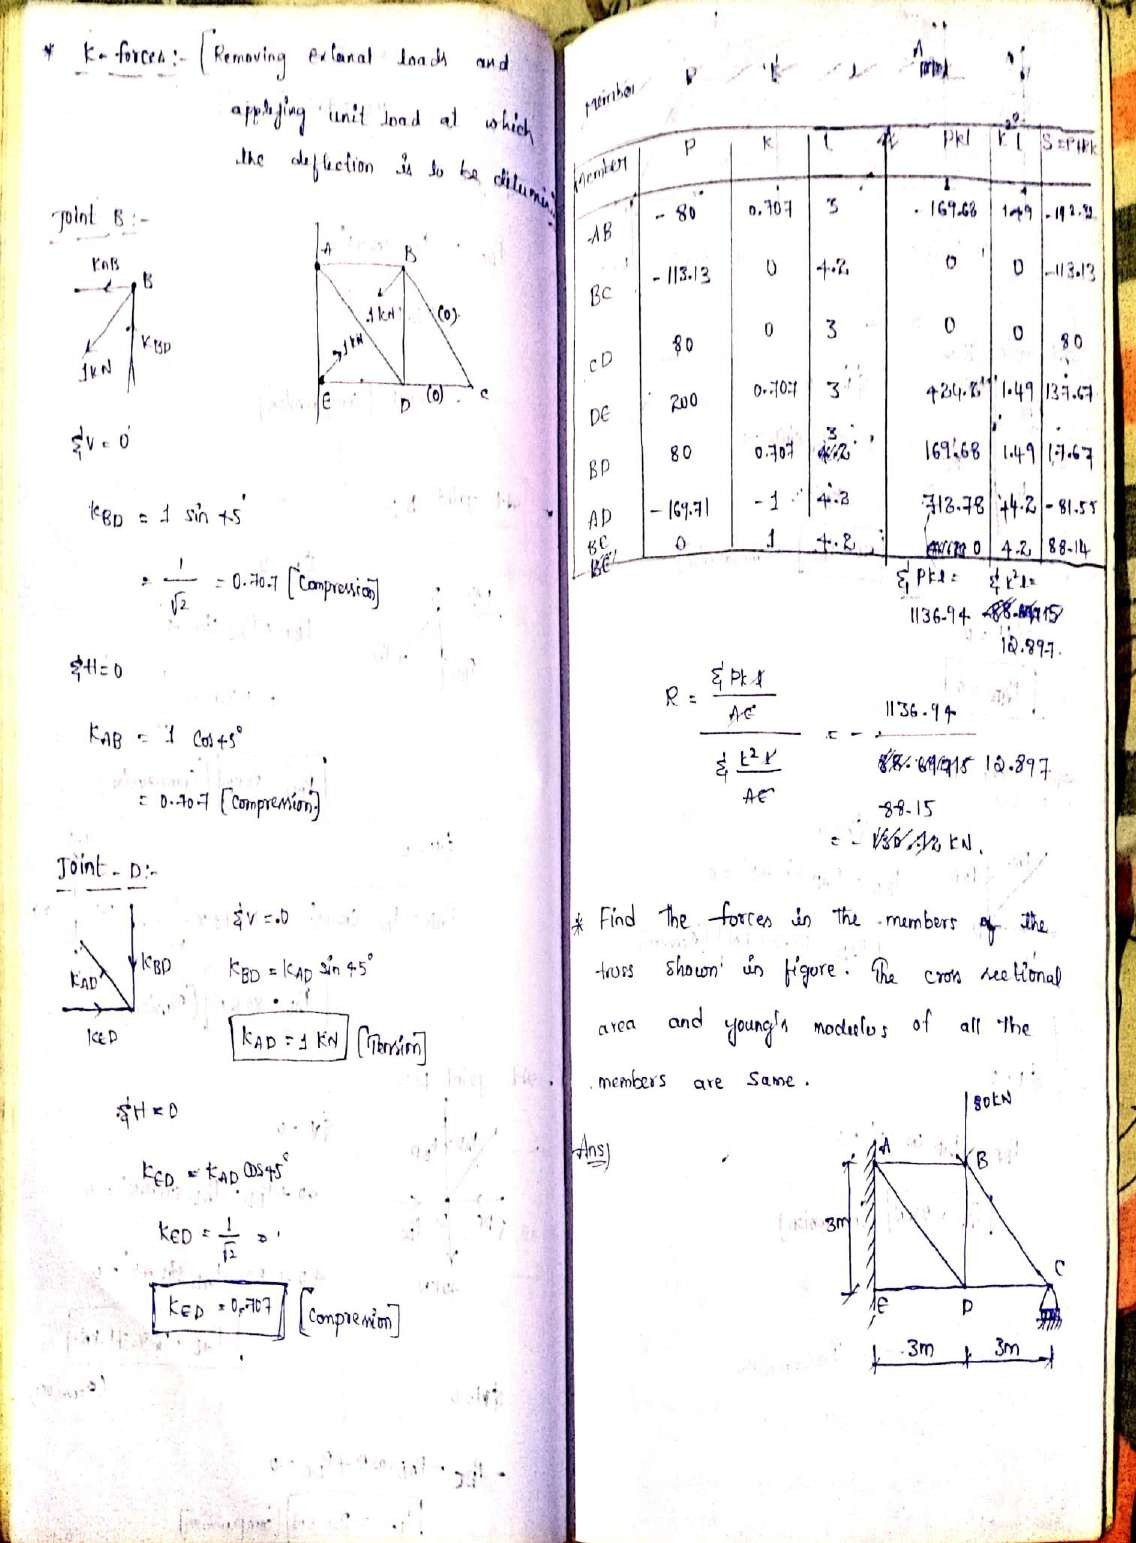 * K-forces:- [Removing extanal loads and
applying unit load at which
the deflection is to be
Joint B:-
KAB
B
KBD
1kN
A
B
1kN
(0)
1kN
E
D
(0)
C
ΣV = 0
KBD = 1 sin 45°
= 1/√2 = 0.707 [Compression]
ΣH=0
KAB = 1 Cos 45°
= 0.707 [Compression]
Joint - D:-
KAD
KBD
KED
ΣV = 0
KBD = KAD sin 45°
KAD = 1 KN [Tension]
ΣH = 0
KED = KAD Cos 45°
KED = 1/√2
KED = 0.707 [Compression]
Member P K l A
Member P K l Pkl K²l S=P+RK
AB - 80 0.707 3 - 169.68 1.49
BC - 113.13 0 4.2 0 0 -113.13
CD 80 0 3 0 0 80
DE 200 0.707 3 424.2 1.49 137.67
BD 80 0.707 3 169.68 1.49 17.67
AD - 169.71 - 1 4.2 712.78 4.2 - 81.55
BE 0 1 4.2 0 4.2 88.14
Σ Pkl = Σ k²l =
1136.94
12.897
R = Σ Pkl/AE / Σ k²l/AE = - 1136.94 / 12.897
88.15
= - kN.
* Find the forces in the members of the
truss shown in figure. The cross sectional
area and young's modulus of all the
members are same.
Ans)
80kN
A
B
3m
C
E
D
3m
3m